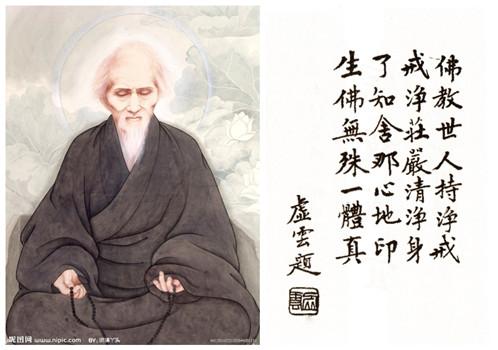 佛教世人持淨戒
戒淨莊嚴清淨身
了知舍那心地印
生佛無殊一體真
虛雲題
昵图网
www.nipic.com
BY: